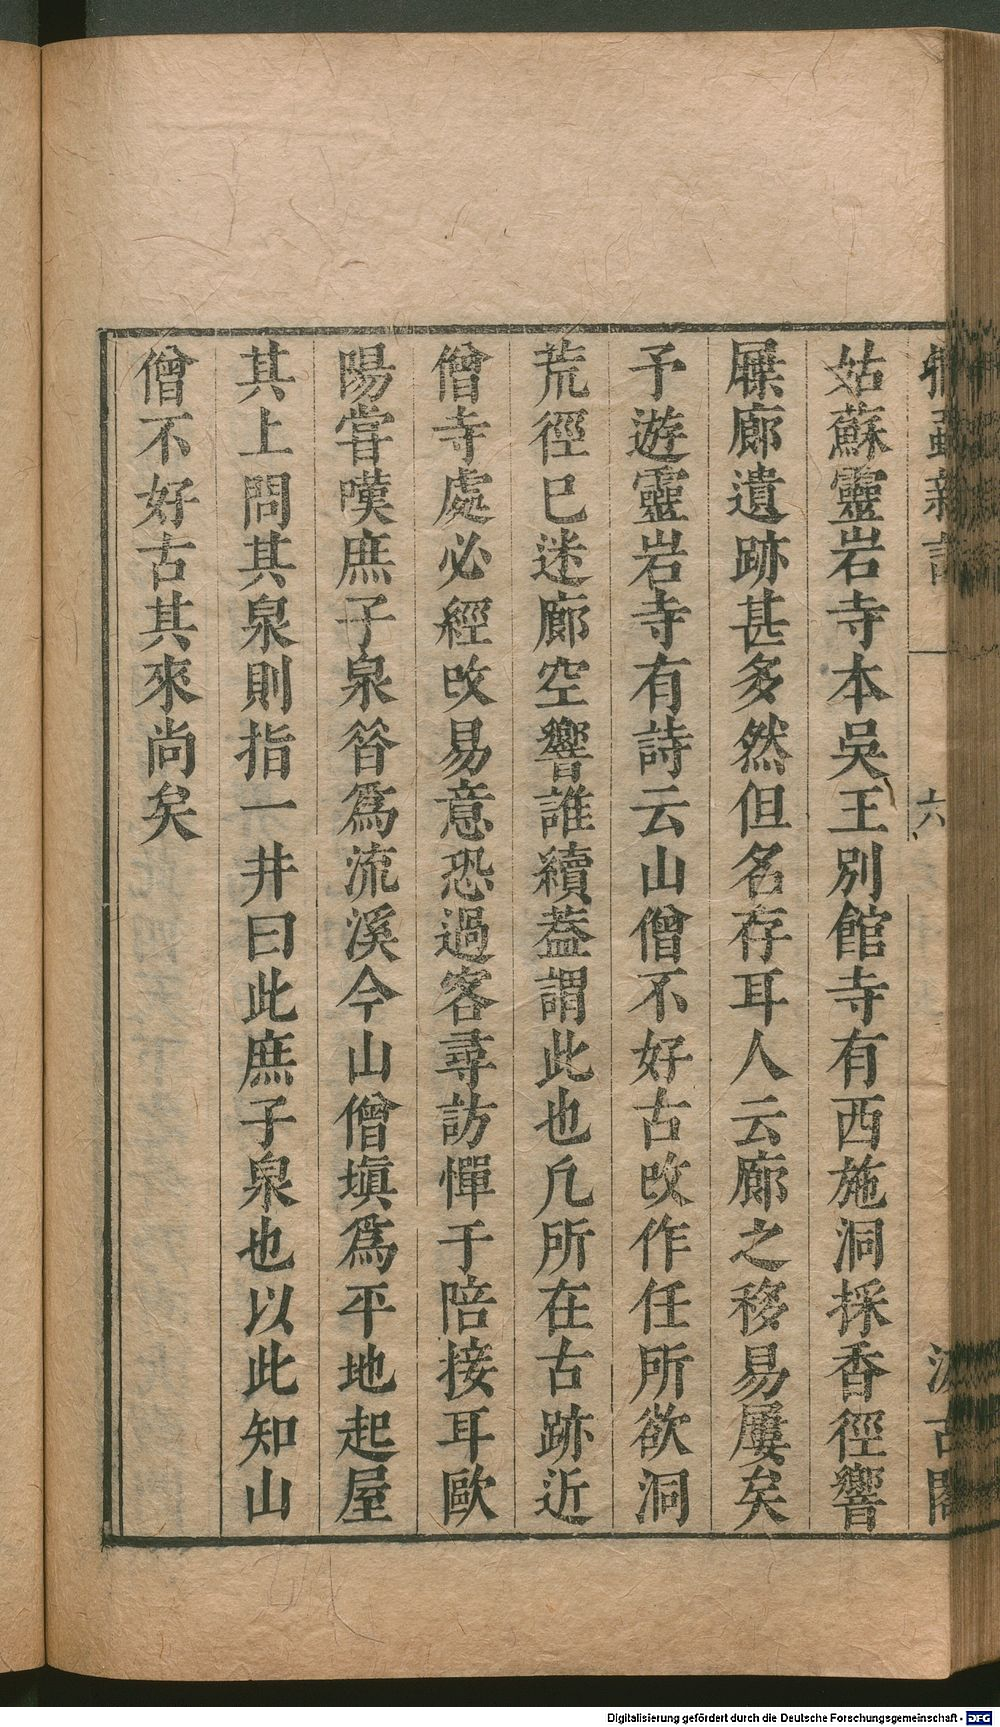 捫蝨新話
六
汲古閣
姑蘇靈岩寺本吳王別館寺有西施洞採香徑響
屧廊遺跡甚多然但名存耳人云廊之移易屢矣
予遊靈岩寺有詩云山僧不好古改作任所欲洞
荒徑已迷廊空響誰續葢謂此也凡所在古跡近
僧寺處必經改易意恐過客尋訪憚于陪接耳歐
陽嘗嘆庶子泉昝爲流溪今山僧塡爲平地起屋
其上問其泉則指一井曰此庶子泉也以此知山
僧不好古其來尚矣
Digitalisierung gefördert durch die Deutsche Forschungsgemeinschaft - DFG